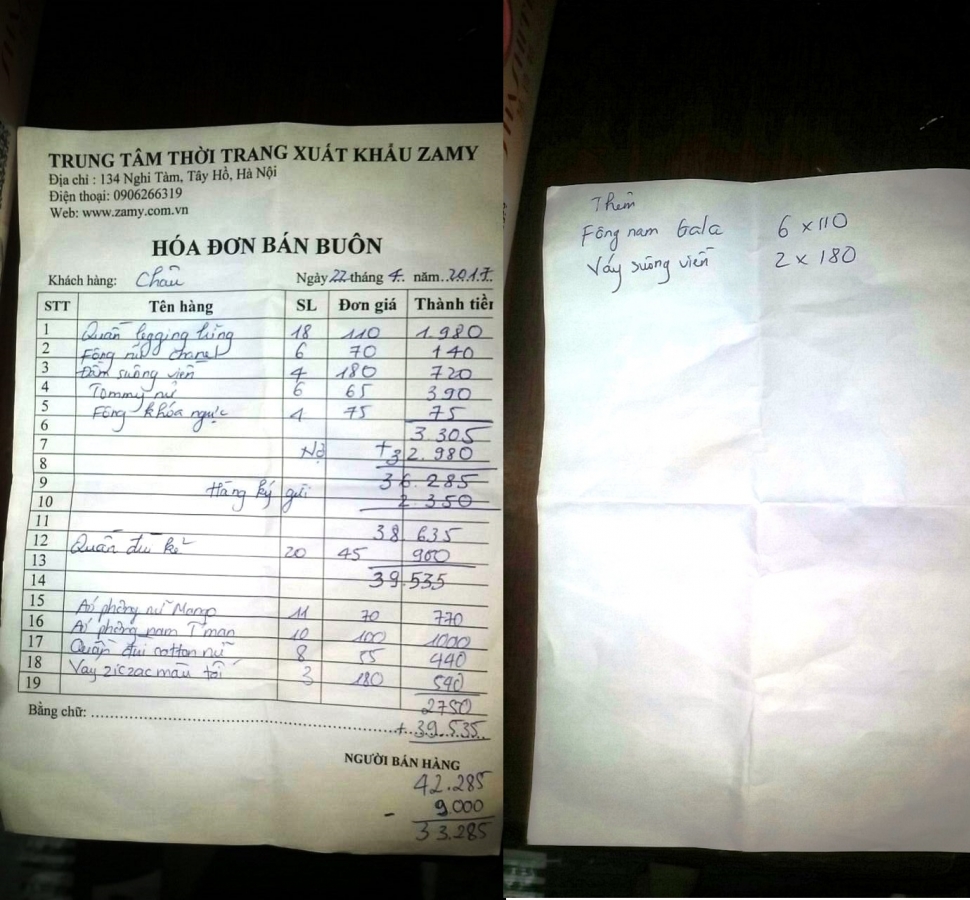 TRUNG TÂM THỜI TRANG XUẤT KHẨU ZAMY
Địa chỉ : 134 Nghi Tàm, Tây Hồ, Hà Nội
Điện thoại: 0906266319
Web: www.zamy.com.vn
HÓA ĐƠN BÁN BUÔN
Khách hàng: Châu Ngày 22 tháng 4 năm 2017
STT Tên hàng SL Đơn giá Thành tiền
1 Quần legging lửng 18 110 1.980
2 Fông nữ chanel 6 70 140
3 Đầm suông viền 4 180 720
4 Tommy nữ 6 65 390
5 Fông khóa ngực 4 75 75
6 3.305
7 Nợ +32.980
8
9 36.285
10 Hàng ký gửi 2.350
11
12 38.635
13 Quần đùi kẻ 20 45 900
14 39.535
15
16 Áo phông nữ Mango 11 70 770
17 Áo phông nam T man 10 100 1000
18 Quần đùi cotton nữ 8 55 440
19 Váy ziczac màu tối 3 180 540
2750
Bằng chữ: + 39.535
NGƯỜI BÁN HÀNG
42.285
- 9.000
33.285
Thêm
Fông nam Gala 6 x 110
Váy suông viền 2 x 180